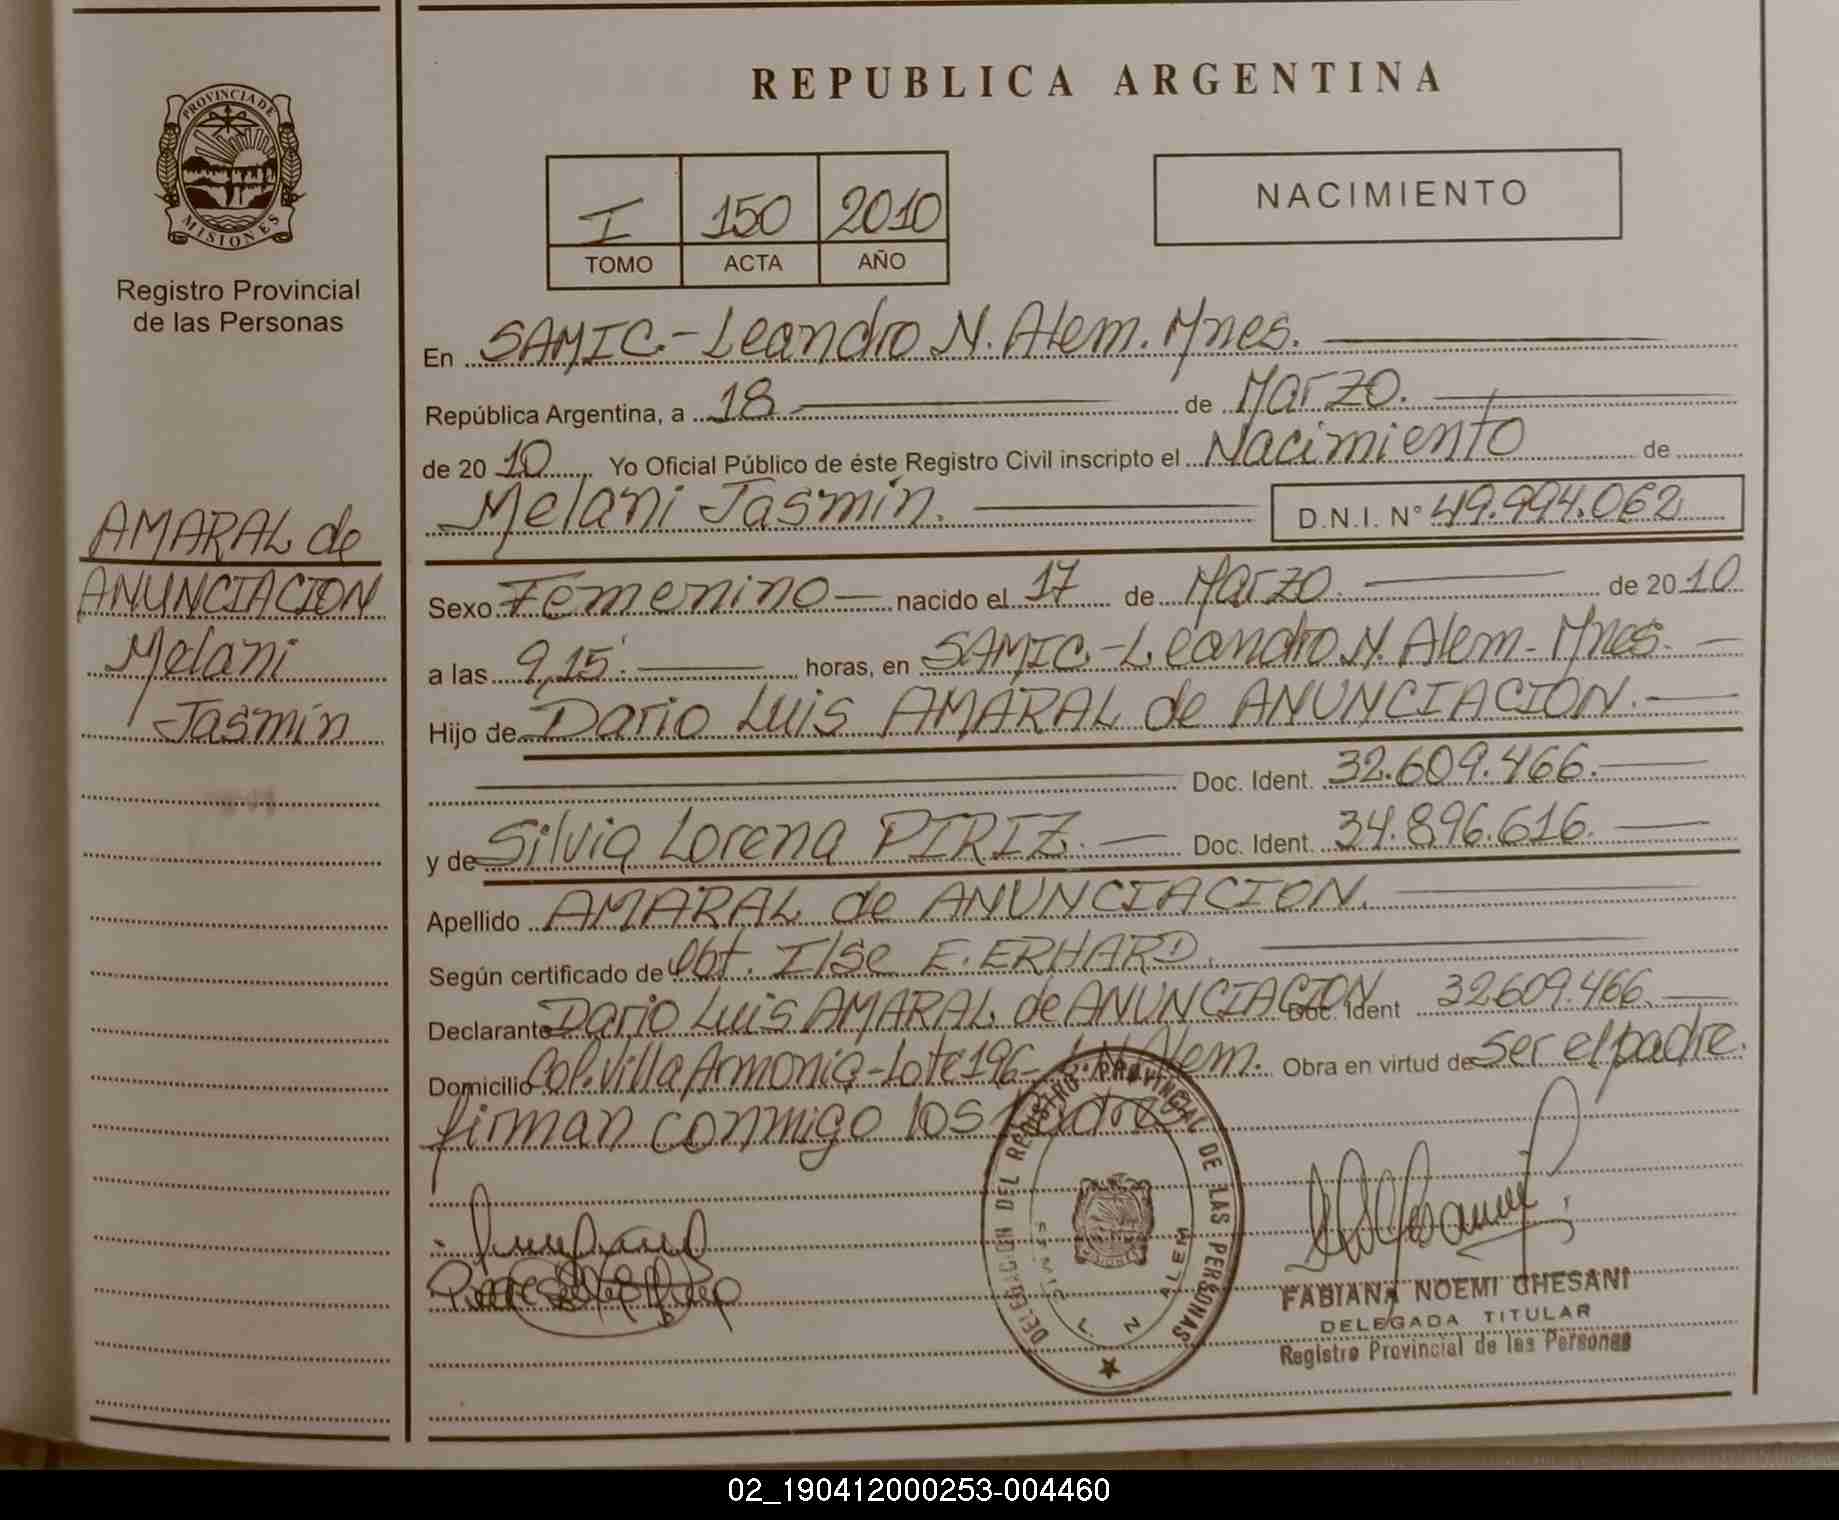 PROVINCIA DE
MISIONES
Registro Provincial
de las Personas
AMARAL de
ANUNCIACION
Melani
Jasmín
REPUBLICA ARGENTINA
I 150 2010
TOMO ACTA AÑO
NACIMIENTO
En SAMIC.-Leandro N. Alem. Mnes.
República Argentina, a 18 de Marzo.
de 20 10 Yo Oficial Público de éste Registro Civil inscripto el Nacimiento de
Melani Jasmín. D.N.I. N° 49.994.062
Sexo Femenino nacido el 17 de Marzo. de 20 10
a las 9,15. horas, en SAMIC.-Leandro N. Alem-Mnes.
Hijo de Dario Luis AMARAL de ANUNCIACION.
Doc. Ident. 32.609.466.
y de Silvia Lorena PIRIZ. Doc. Ident. 34.896.616.
Apellido AMARAL de ANUNCIACION.
Según certificado de Obt. Ilse E. ERHARD.
Declarante Dario Luis AMARAL de ANUNCIACION Doc. Ident 32609.466.
Domicilio Col. Villa Armonia-Lote 196- L.N. Alem. Obra en virtud de ser el padre.
firman conmigo los padres
DELEGACION DEL REGISTRO PROVINCIAL DE LAS PERSONAS
L. N. ALEM
FABIANA NOEMI GHESANI
DELEGADA TITULAR
Registro Provincial de las Personas
02_190412000253-004460